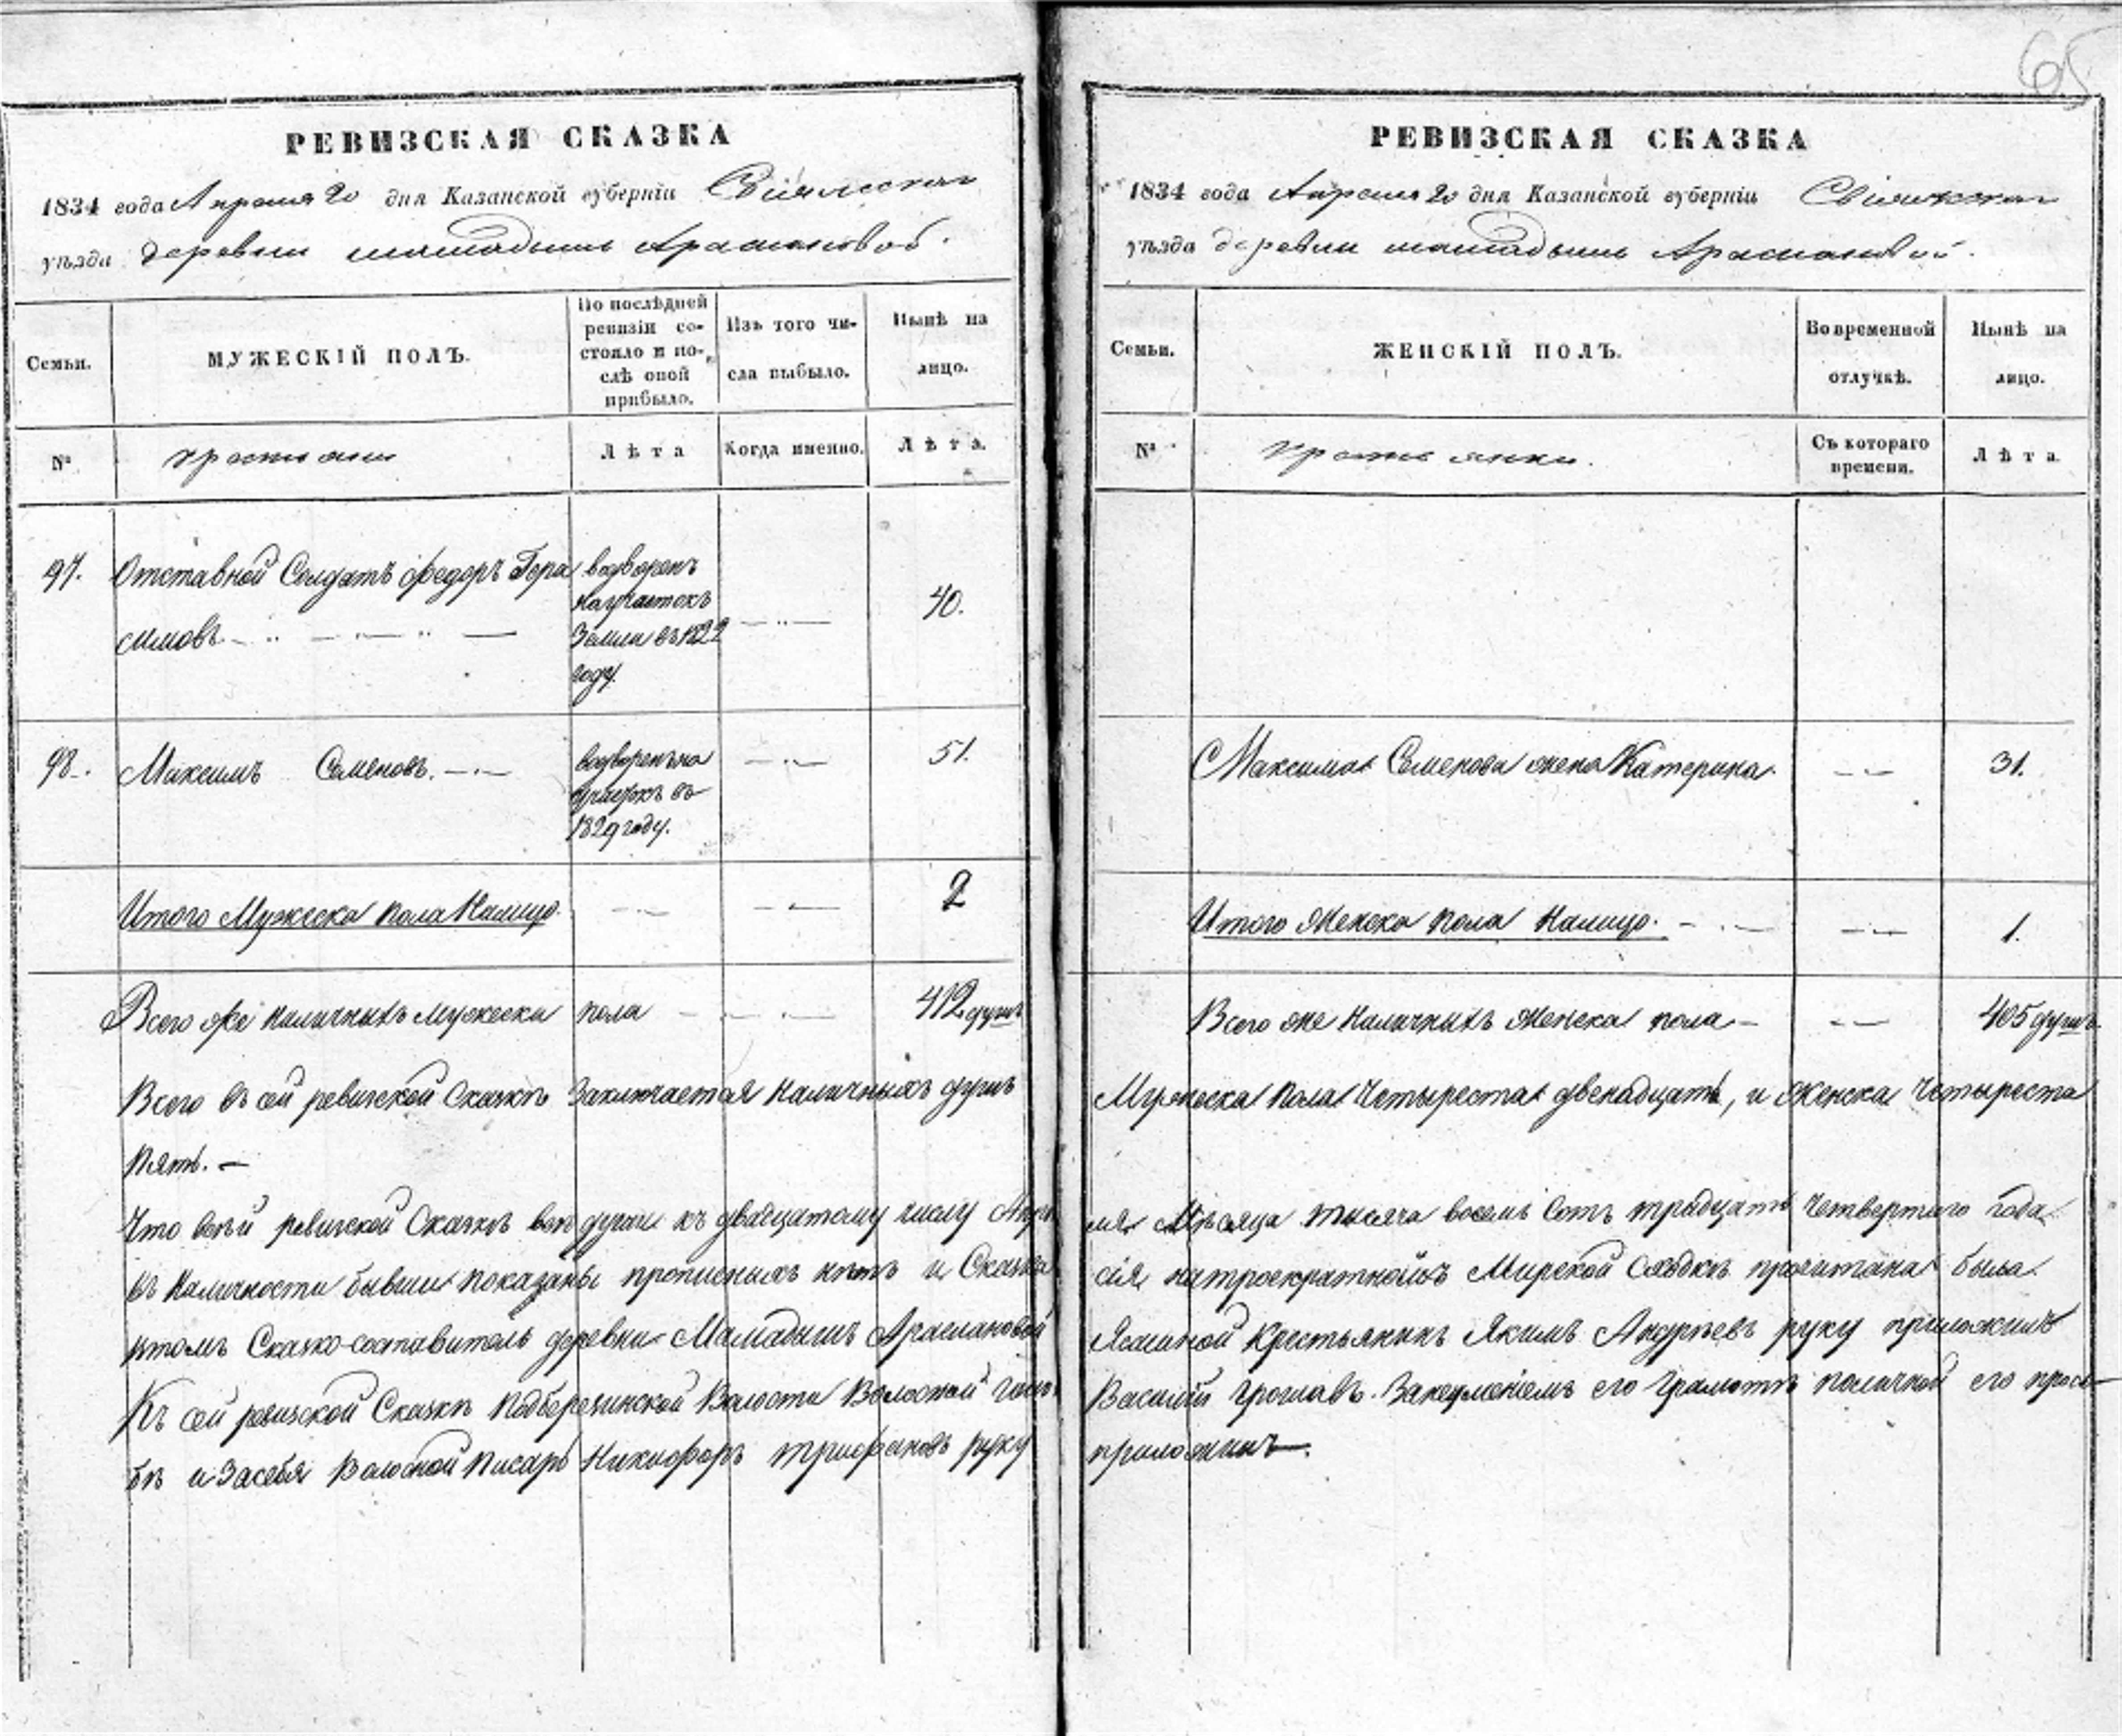 65
РЕВИЗСКАЯ СКАЗКА
1834 года Апреля 20 дня Казанской губерніи Свіяжскаго
уѣзда деревни мамадышъ Араслановой.
Семьи.
МУЖЕСКІЙ ПОЛЪ.
По послѣдней
ревизіи со-
стояло и по-
слѣ оной
прибыло.
Изъ того чи-
сла выбыло.
Нынѣ на
лицо.
№
крестьяне
Лѣта
Когда именно.
Лѣта.
97.
Отставной Солдатъ Федоръ Гера
симовъ
водворенъ
на участокъ
Земли въ 1822
году.
40.
98.
Максимъ Семеновъ.
водворенъ на
участокъ въ
1829 году.
51.
Итого Мужеска пола Налицо
2
Всего же наличныхъ мужеска пола
412 душъ
Всего въ сей ревизской Сказкѣ Заключается Наличныхъ душъ
Пять.
Что въ сей ревизской Сказкѣ все души къ двадцатому числу Апре
въ Наличности бывши показаны прописныхъ нѣтъ и Сказка
въ томъ Сказко-составитель деревни Мамадышъ Араслановой
Къ сей ревизской Сказкѣ Подберезинской Волости Волостной
бѣ и За себя Волосной Писарь Никифоръ Трифоновъ руку
РЕВИЗСКАЯ СКАЗКА
1834 года Апреля 20 дня Казанской губерніи Свіяжскаго
уѣзда деревни мамадышъ Араслановой.
Семьи.
ЖЕНСКІЙ ПОЛЪ.
Во временной
отлучкѣ.
Нынѣ на
лицо.
№
крестьянки.
Съ котораго
времени.
Лѣта
Максима Семенова жена Катерина.
31.
Итого Женска пола Налицо.
1.
Всего же Наличныхъ Женска пола
405 душъ.
Мужеска Пола Четыреста двенадцать, и Женска Четыреста
ля Мѣсяца тысяча восемь Сотъ тридцать Четвертаго года
сія на троекратномъ Мирской Сходкѣ прочитана была
Крестьянинъ Якимъ Андреевъ руку приложилъ
Василий За неуменіемъ его грамотѣ поличной его прось
приложилъ.